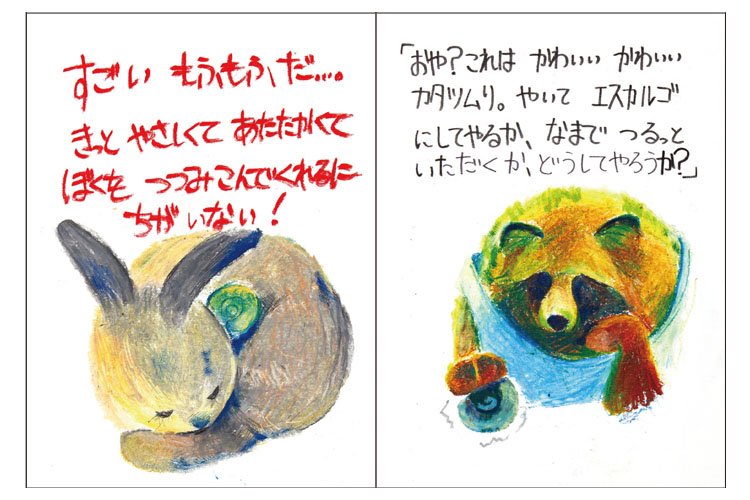 すごい もふもふ、だ…。
きっと やさしくて あたたかくて
ぼくを つつみこんでくれるに
ちがいない！
「おや？これは かわいい かわいい
カタツムリ。やいて エスカルゴ
にしてやるか、なまで つるっと
いただくか、どうしてやろうか？」